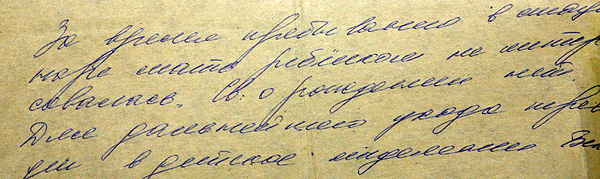 За время пребывания в стацио
наре мать ребёнком не интере
совалась. Св. о рождении нет.
Для дальнейшего ухода перев
ден в детское отделение